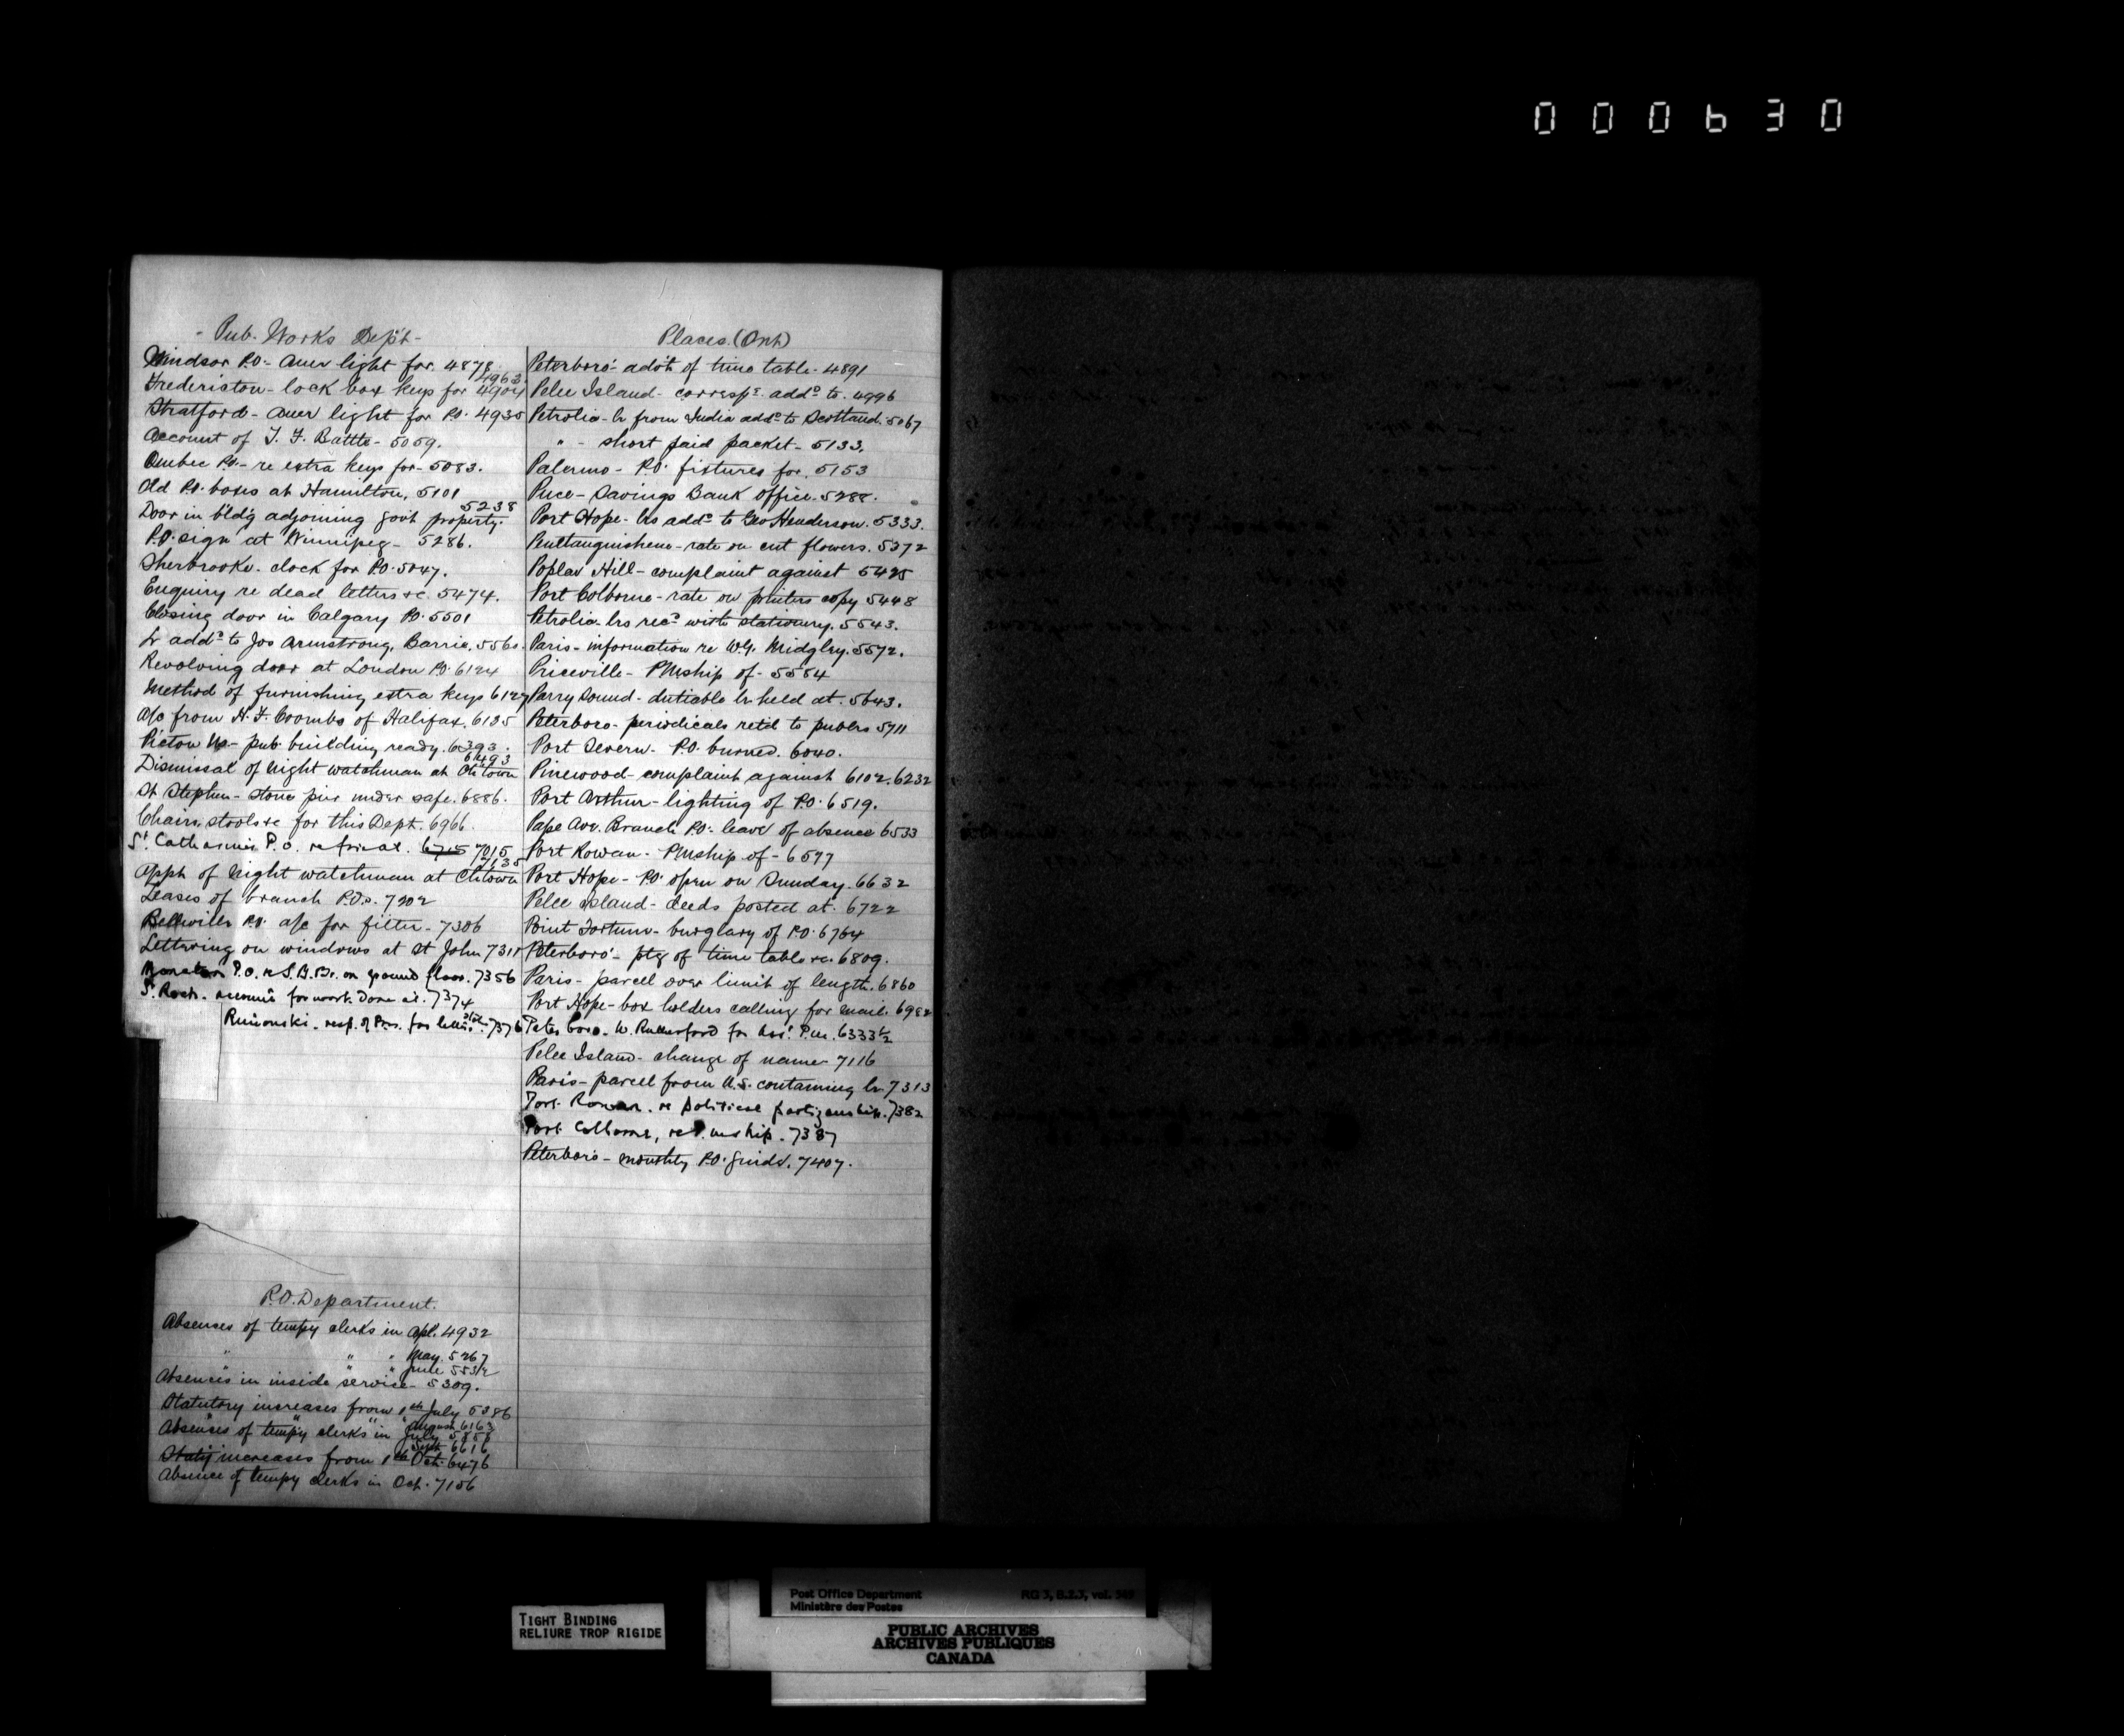 000630
Pub. Works Dep't
Windsor P.O. - Auer light for. 4878
4963
Fredericton - lock box keys for 4904
Stratford - Auer light for P.O. 4935
Account of T. F. Battle - 5059.
Quebec P.O. - re extra keys for - 5083.
Old P.O. boxes at Hamilton, 5101
5238
Door in bld'g adjoining gov't property.
P.O. sign at Winnipeg - 5286.
Sherbrooke. clock for P.O. 5047.
Enquiry re dead letters &c. 5474.
Closing door in Calgary P.O. 5501
Lr add'd to Jos Armstrong, Barrie,
Revolving door at London P.O. 6124
Method of furnishing extra keys 6127
a/c from H. F. Coombs of Halifax. 6135
Pictou NS - pub. building ready. 6393.
6493
Dismissal of night watchman at Ch'town
St Stephen - stone pier under safe. 6886.
Chairs, stools &c for this Dept. 6966.
St. Catharines P.O. 7015
7135
Appt of night watchman at Ch'town
Leases of branch P.O.s. 7202
Belleville P.O. a/c for filter - 7306
Lettering on windows at St John 7311
P.O. re S.B. Br. on ground floor. 7356
St. Roch. account for work done at. 7374
Rimouski - resp. of Pm. for 7376
P.O. Department.
Absences of temp'y clerks in Apl. 4932
" " " May. 5267
" " " June
Absences in inside service - 5309.
Statutory increases from 1st July 5386
" " " August 6163
Absences of temp'y clerks in July 5858
Sept. 6616
Stat'y increases from 1st Oct. 6476
Absence of temp'y clerks in Oct. 7156
Places. (Ont)
Peterboro' - adv't of time table - 4891
Pelee Island - corresp'e. add'd to. 4996
Petrolia - lr from India add'd to Scotland. 5067
" - short paid packet - 5133.
Palermo - P.O. fixtures for. 5153
Puce - Savings Bank office. 5288.
Port Hope - lrs add'd to Geo Henderson. 5333.
Penetanguishene - rate on cut flowers. 5372
Poplar Hill - complaint against 5425
Port Colborne - rate on printers copy 5448
Petrolia - lrs rec'd with stationery. 5543.
Paris - information re W.G. Midgley. 5572.
Priceville - PMship of - 5584
Parry Sound - dutiable lr held at. 5643.
Peterboro - periodicals ret'd to publrs 5711
Port Severn - P.O. burned. 6040.
Pinewood - complaint against 6102. 6232
Port Arthur - lighting of P.O. 6519.
Pape Ave. Branch P.O. - leave of absence 6533
Port Rowan - PMship of - 6577
Port Hope - P.O. open on Sunday. 6632
Pelee Island - deeds posted at. 6722
Point Fortune - burglary of P.O. 6764
Peterboro' - ptg of time table &c. 6809.
Paris - parcel over limit of length. 6860
Port Hope - box holders calling for mail. 6982
Peterboro. W. Rutherford for Asst. P.M. 6333½
Pelee Island - change of name - 7116
Paris - parcel from U.S. containing lr. 7313
Port Rowan. re political partizanship. 7382
Port Colborne, re P.mship. 7387
Peterboro - monthly P.O. Guide. 7407.
TIGHT BINDING
RELIURE TROP RIGIDE
Post Office Department RG 3, B.2.3, vol. 569
Ministère des Postes
PUBLIC ARCHIVES
ARCHIVES PUBLIQUES
CANADA